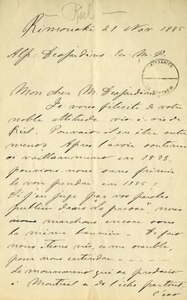 Riel
Rimouski 21 Nov 1885
Alp. Desjardins Ec. M.P.
Mon cher M. Desjardins
Je vous félicite de votre
noble attitude vis-à-vis de
Riel. Pouvait-il en être autre
ment. Après l'avoir soutenu
si vaillamment en 1873,
pouvions nous sans frémir
le voir pendre en 1885?
Si j'en juge par vos paroles
publiées dans la presse, nous
nous marchons encore sous
la même bannière. Il faut
nous tenir unis, ensemble,
pour nous entendre
de mouvement que se produit
à Montréal a de l'écho partout